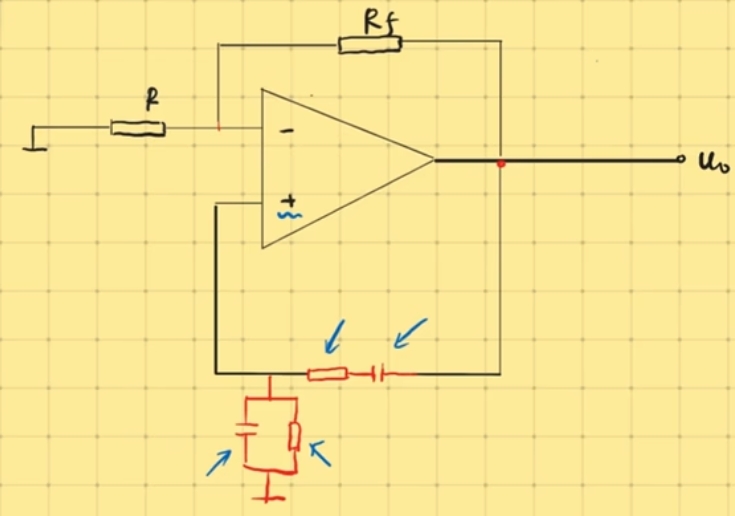 Rf
R
-
+
u₀